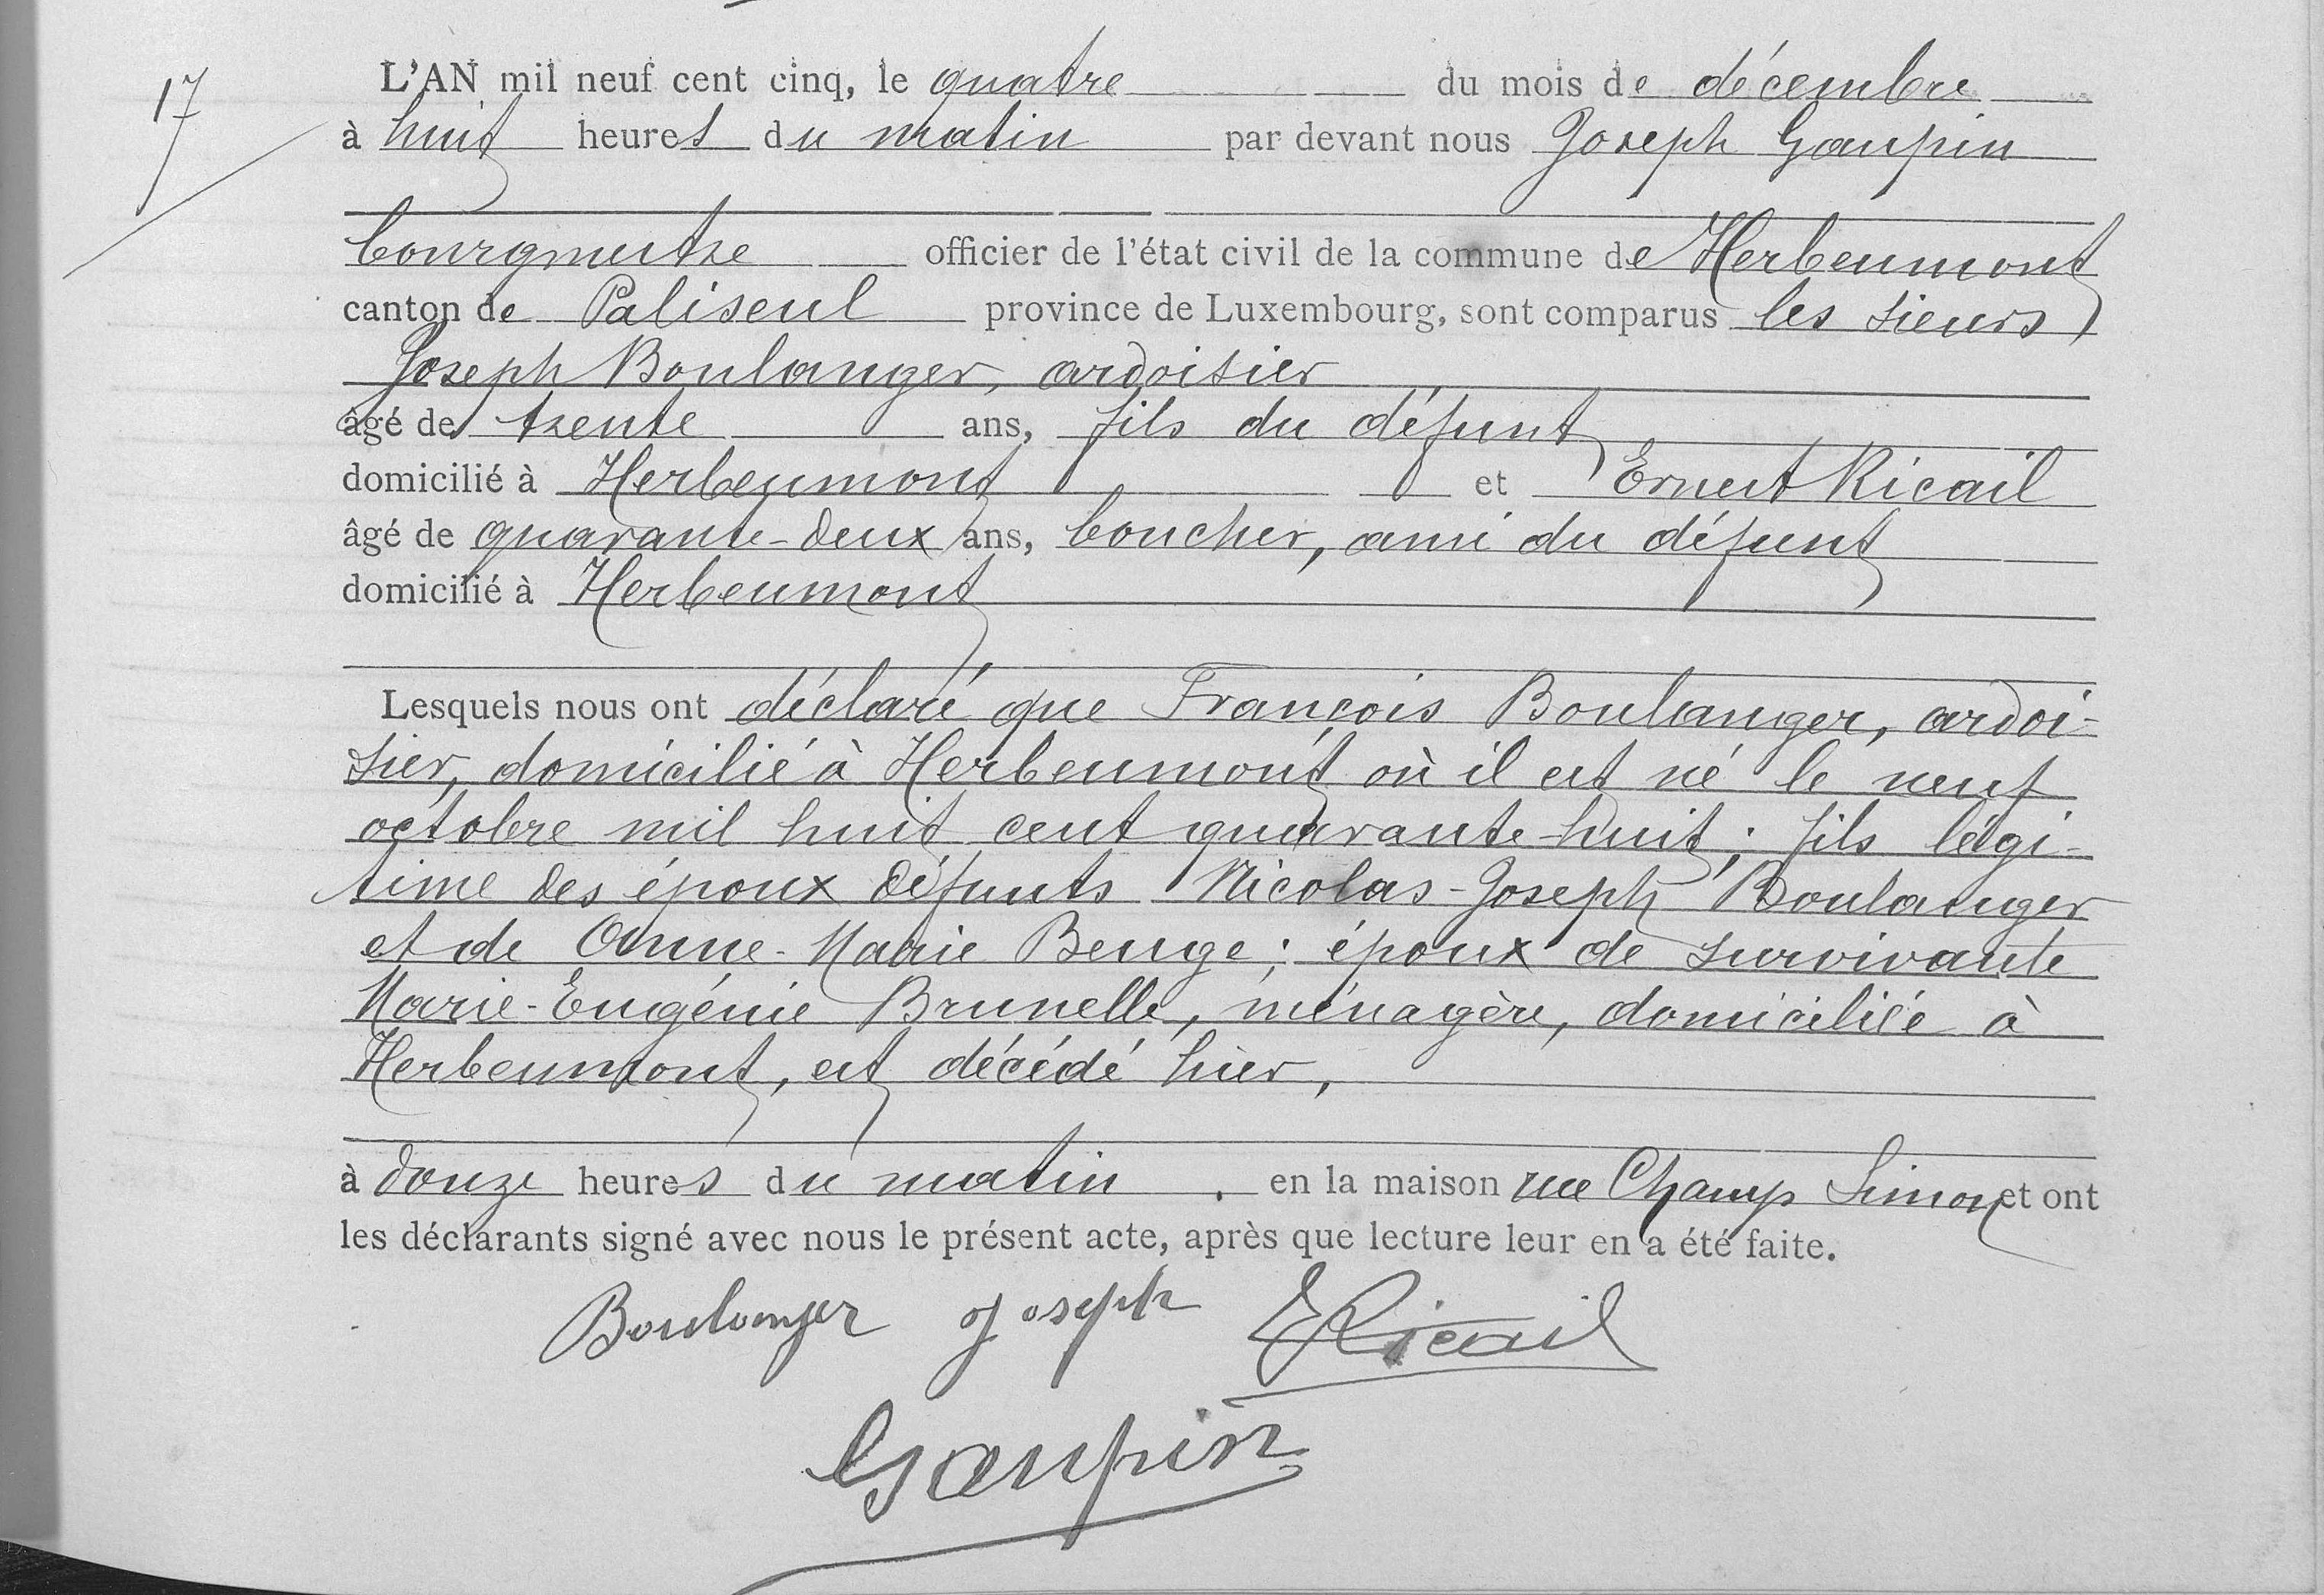 17
L'AN mil neuf cent cinq, le quatre du mois de décembre
à huit heures du matin par devant nous Joseph Gaupin
bourgmestre officier de l'état civil de la commune de Herbeumont
canton de Paliseul province de Luxembourg, sont comparus les sieurs
Joseph Boulanger, ardoisier
âgé de trente ans, fils du défunt
domicilié à Herbeumont et Ernest Ricail
âgé de quarante-deux ans, boucher, ami du défunt
domicilié à Herbeumont
Lesquels nous ont déclaré que François Boulanger, ardoi-
sier, domicilié à Herbeumont où il est né le neuf
octobre mil huit cent quarante-huit; fils légi-
time des époux défunts Nicolas-Joseph Boulanger
et de Anne-Marie Benge; époux de survivante
Marie-Eugénie Brunelle, ménagère, domiciliée à
Herbeumont, est décédé hier,
à douze heures du matin. en la maison rue Champ Simon et ont
les déclarants signé avec nous le présent acte, après que lecture leur en a été faite.
Boulanger Joseph ERicail
Gaupin